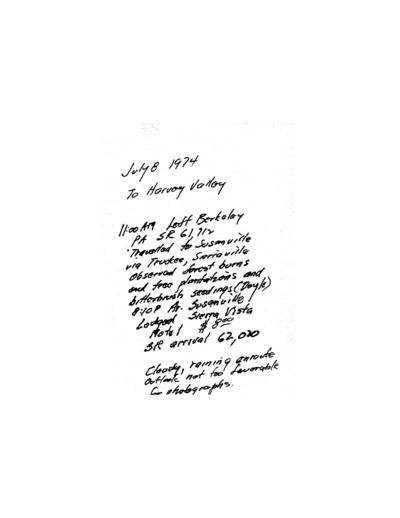 July 8 1974
To Harvey Valley
11:00 AM Left Berkeley
PA SR 61,712
Travelled to Susanville
via Truckee, Sierraville
Observed forest burns
and tree plantations and
bitterbrush seedings (Doyle)
8:40 P Ar. Susanville
Lodged Sierra Vista
Motel $ 8.00
SR arrival 62,020
Cloudy, raining enroute
Outlook not too favorable
for photographs.